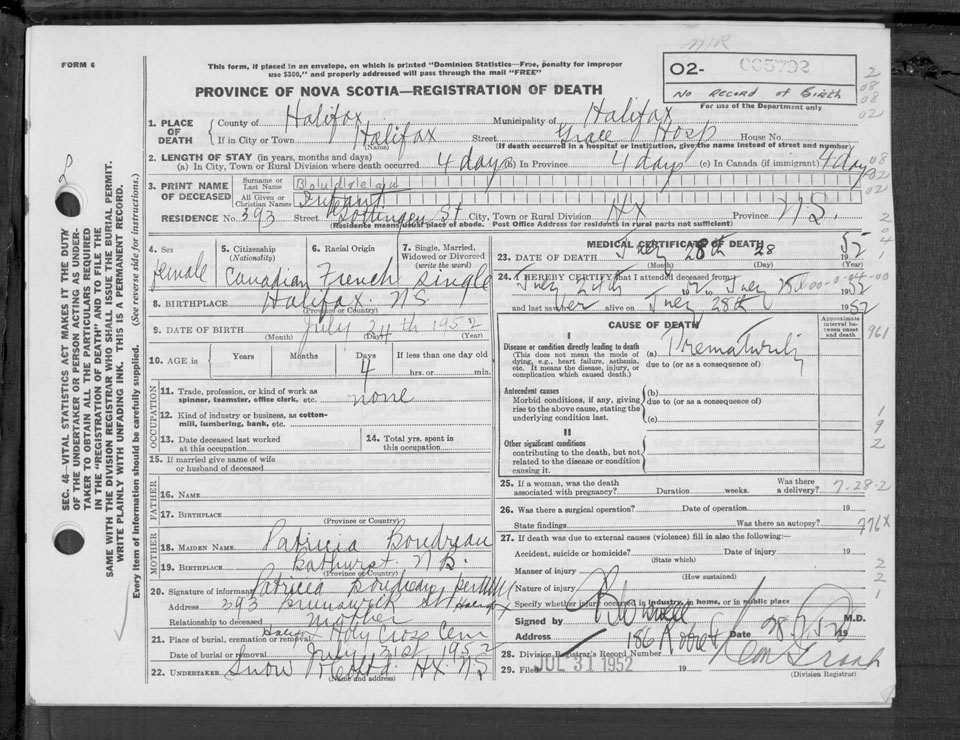 N/R
FORM 6
This form, if placed in an envelope, on which is printed "Dominion Statistics—Free, penalty for improper
use $300," and properly addressed will pass through the mail "FREE"
02- 005792
No RECORD of Birth
For use of the Department only
PROVINCE OF NOVA SCOTIA—REGISTRATION OF DEATH
1. PLACE OF DEATH
County of Halifax Municipality of Halifax
If in City or Town Halifax Street Grace Hosp House No.
(Name) (If death occurred in a hospital or institution, give the name instead of street and number)
2. LENGTH OF STAY (in years, months and days)
(a) In City, Town or Rural Division where death occurred 4 days (B) In Province 4 days (c) In Canada (if immigrant) 4 days
3. PRINT NAME OF DECEASED
Surname or Last Name Boudreau
All Given or Christian Names Infant
RESIDENCE No. 393 Street Gottingen St City, Town or Rural Division Hx Province N.S.
(Residence means usual place of abode. Post Office Address for residents in rural parts not sufficient)
4. Sex
female
5. Citizenship (Nationality)
Canadian
6. Racial Origin
French
7. Single, Married, Widowed or Divorced (write the word)
Single
8. BIRTHPLACE Halifax. N.S
(Province or Country)
9. DATE OF BIRTH July 24th 1952
(Month) (Day) (Year)
10. AGE in Years Months Days If less than one day old
4 hrs. or min.
OCCUPATION
11. Trade, profession, or kind of work as
spinner, teamster, office clerk, etc. none
12. Kind of industry or business, as cotton-
mill, lumbering, bank, etc.
13. Date deceased last worked
at this occupation
14. Total yrs. spent in
this occupation
15. If married give name of wife
or husband of deceased
FATHER
16. NAME
17. BIRTHPLACE
(Province or Country)
MOTHER
18. MAIDEN NAME Patricia Boudreau
19. BIRTHPLACE Bathurst. N.B.
(Province or Country)
20. Signature of informant Patricia Boudreau
Address 393 Brunswick St Halifax
Relationship to deceased Mother
21. Place of burial, cremation or removal Halifax Holy Cross Cem
Date of burial or removal July 31st 1952
22. UNDERTAKER Snow & Co Ltd. Hx N.S
(Name and address)
MEDICAL CERTIFICATE OF DEATH
23. DATE OF DEATH July 28th 28 52
(Month) (Day) (Year)
24. I HEREBY CERTIFY that I attended deceased from:
July 24th 1952 to July 28 1952
and last saw her alive on July 28th 1952
CAUSE OF DEATH
Approximate interval between onset and death
I
Disease or condition directly leading to death
(This does not mean the mode of
dying, e.g., heart failure, asthenia,
etc. It means the disease, injury, or
complication which caused death.)
(a) Prematurity
due to (or as a consequence of)
Antecedent causes
Morbid conditions, if any, giving
rise to the above cause, stating the
underlying condition last.
(b)
due to (or as a consequence of)
(c)
II
Other significant conditions
contributing to the death, but not
related to the disease or condition
causing it.
25. If a woman, was the death
associated with pregnancy? Duration weeks. Was there
a delivery? 7-28-2
26. Was there a surgical operation? Date of operation 19
State findings Was there an autopsy? 776X
27. If death was due to external causes (violence) fill in also the following:—
Accident, suicide or homicide? Date of injury 19
(State which)
Manner of injury
(How sustained)
Nature of injury
Specify whether injury occurred in industry, in home, or in public place
Signed by M.D.
Address 186 Date 28 52 19
28. Division Registrar's Record Number
29. Filed JUL 31 1952 19
(Division Registrar)
SEC. 46—VITAL STATISTICS ACT MAKES IT THE DUTY
OF THE UNDERTAKER OR PERSON ACTING AS UNDER-
TAKER TO OBTAIN ALL THE PARTICULARS REQUIRED
IN THE "REGISTRATION OF DEATH" AND TO FILE THE
SAME WITH THE DIVISION REGISTRAR WHO SHALL ISSUE THE BURIAL PERMIT.
WRITE PLAINLY WITH UNFADING INK. THIS IS A PERMANENT RECORD.
Every item of Information should be carefully supplied. (See reverse side for instructions.)
2
08
08
02
08
02
02
2
04
961
1
9
2
2
2
1